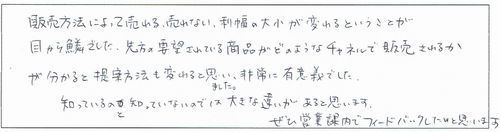 販売方法によって売れる、売れない、利幅の大小が変わるということが
目から鱗でした。先方の要望されている商品がどのようなチャネルで販売されるか
が分かると提案方法も変わると思いました。非常に有意義でした。
知っているのと知っていないのでは大きな違いがあると思います。
ぜひ営業課内でフィードバックしたいと思います